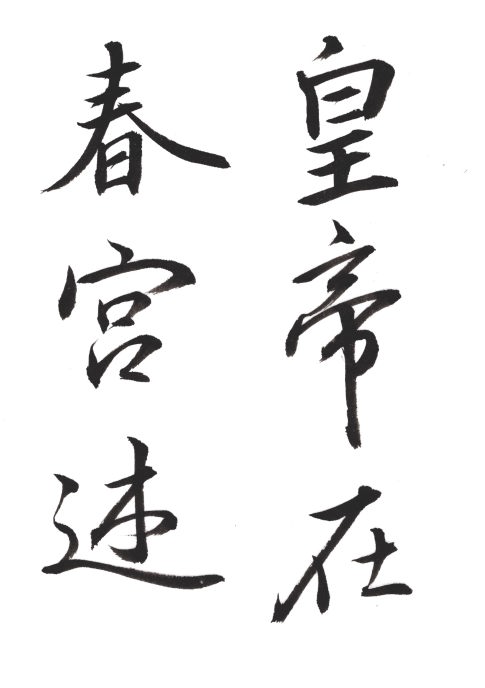 皇帝在
春宮述